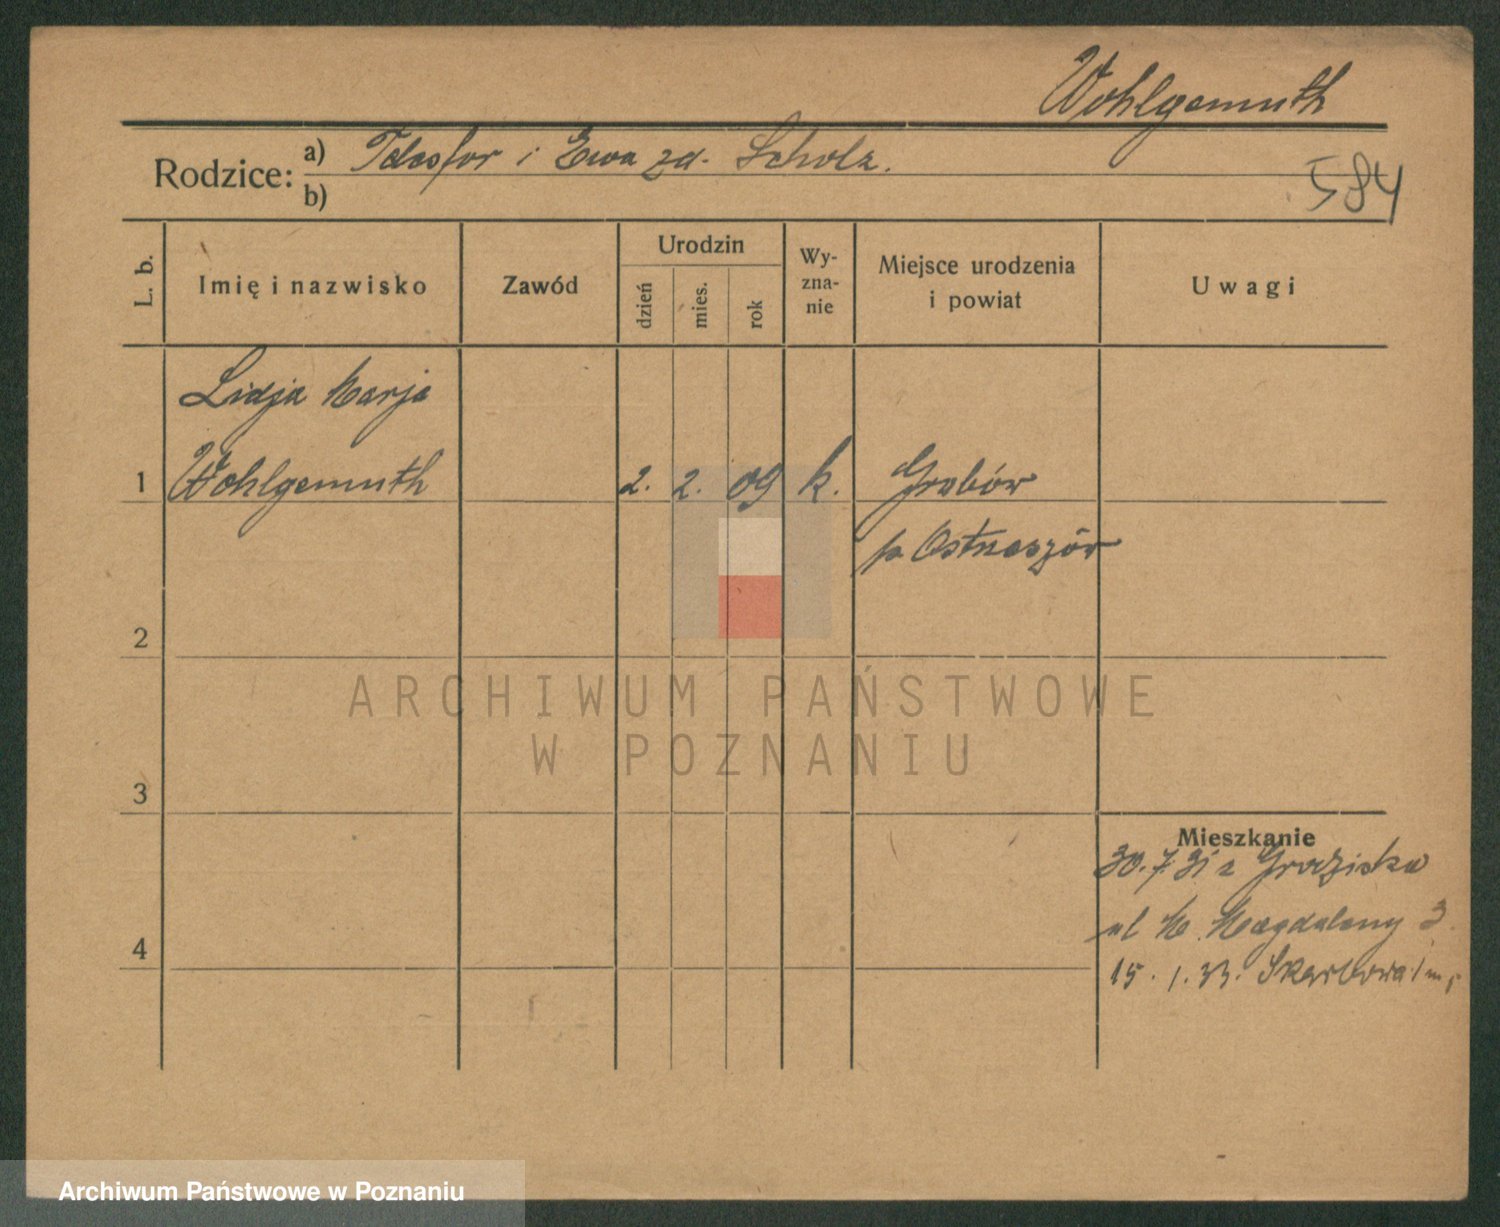 Wohlgemuth
Rodzice: a) Telesfor i Ewa zd. Scholz.
b)
584
L. b.
Imię i nazwisko
Zawód
Urodzin
dzień
mies.
rok
Wy-
zna-
nie
Miejsce urodzenia
i powiat
Uwagi
Lidja Marja
1 Wohlgemuth 2. 2. 09 k. Grabów
p Ostrzeszów
2
ARCHIWUM PAŃSTWOWE
W POZNANIU
3
Mieszkanie
30.7 31 z Grodziska
ul M. Magdaleny 3
4
15. 1. 33. Skarbowa 1 m
Archiwum Państwowe w Poznaniu